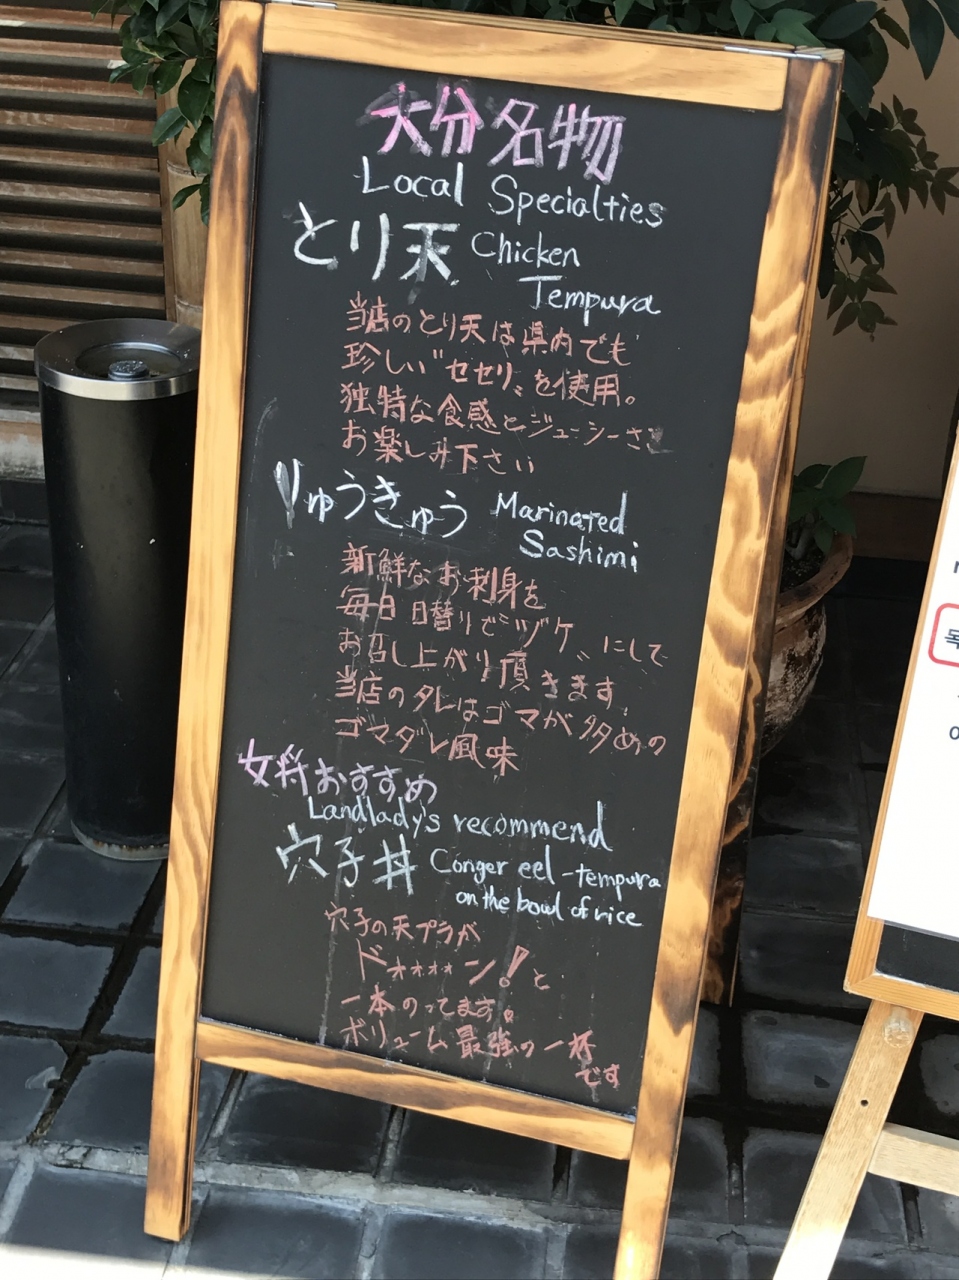 大分名物
Local Specialties
とり天 Chicken
Tempura
当店のとり天は県内でも
珍しい〝セセリ〟を使用。
独特な食感とジューシーさを
お楽しみ下さい
りゅうきゅう Marinated
Sashimi
新鮮なお刺身を
毎日日替りで〝ヅケ〟にして
お召し上がり頂きます。
当店のタレはゴマが多めの
ゴマダレ風味
女将おすすめ
Landlady's recommend
穴子丼 Conger eel-tempura
on the bowl of rice
穴子の天プラが
ドォォォォン!と
一本のってます。
ボリューム最強の一杯
です